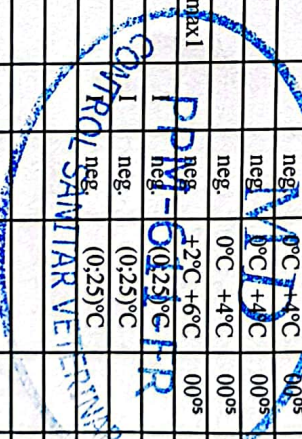 neg. 0°C +4°C 00⁰⁵
neg. 0°C +4°C 00⁰⁵
neg. 0°C +4°C 00⁰⁵
max1 neg. +2°C +6°C 00⁰⁵
I neg. (0;25)°C
I neg. (0;25)°C
I neg. (0;25)°C
MD
CONTROL SANITAR VETERINAR